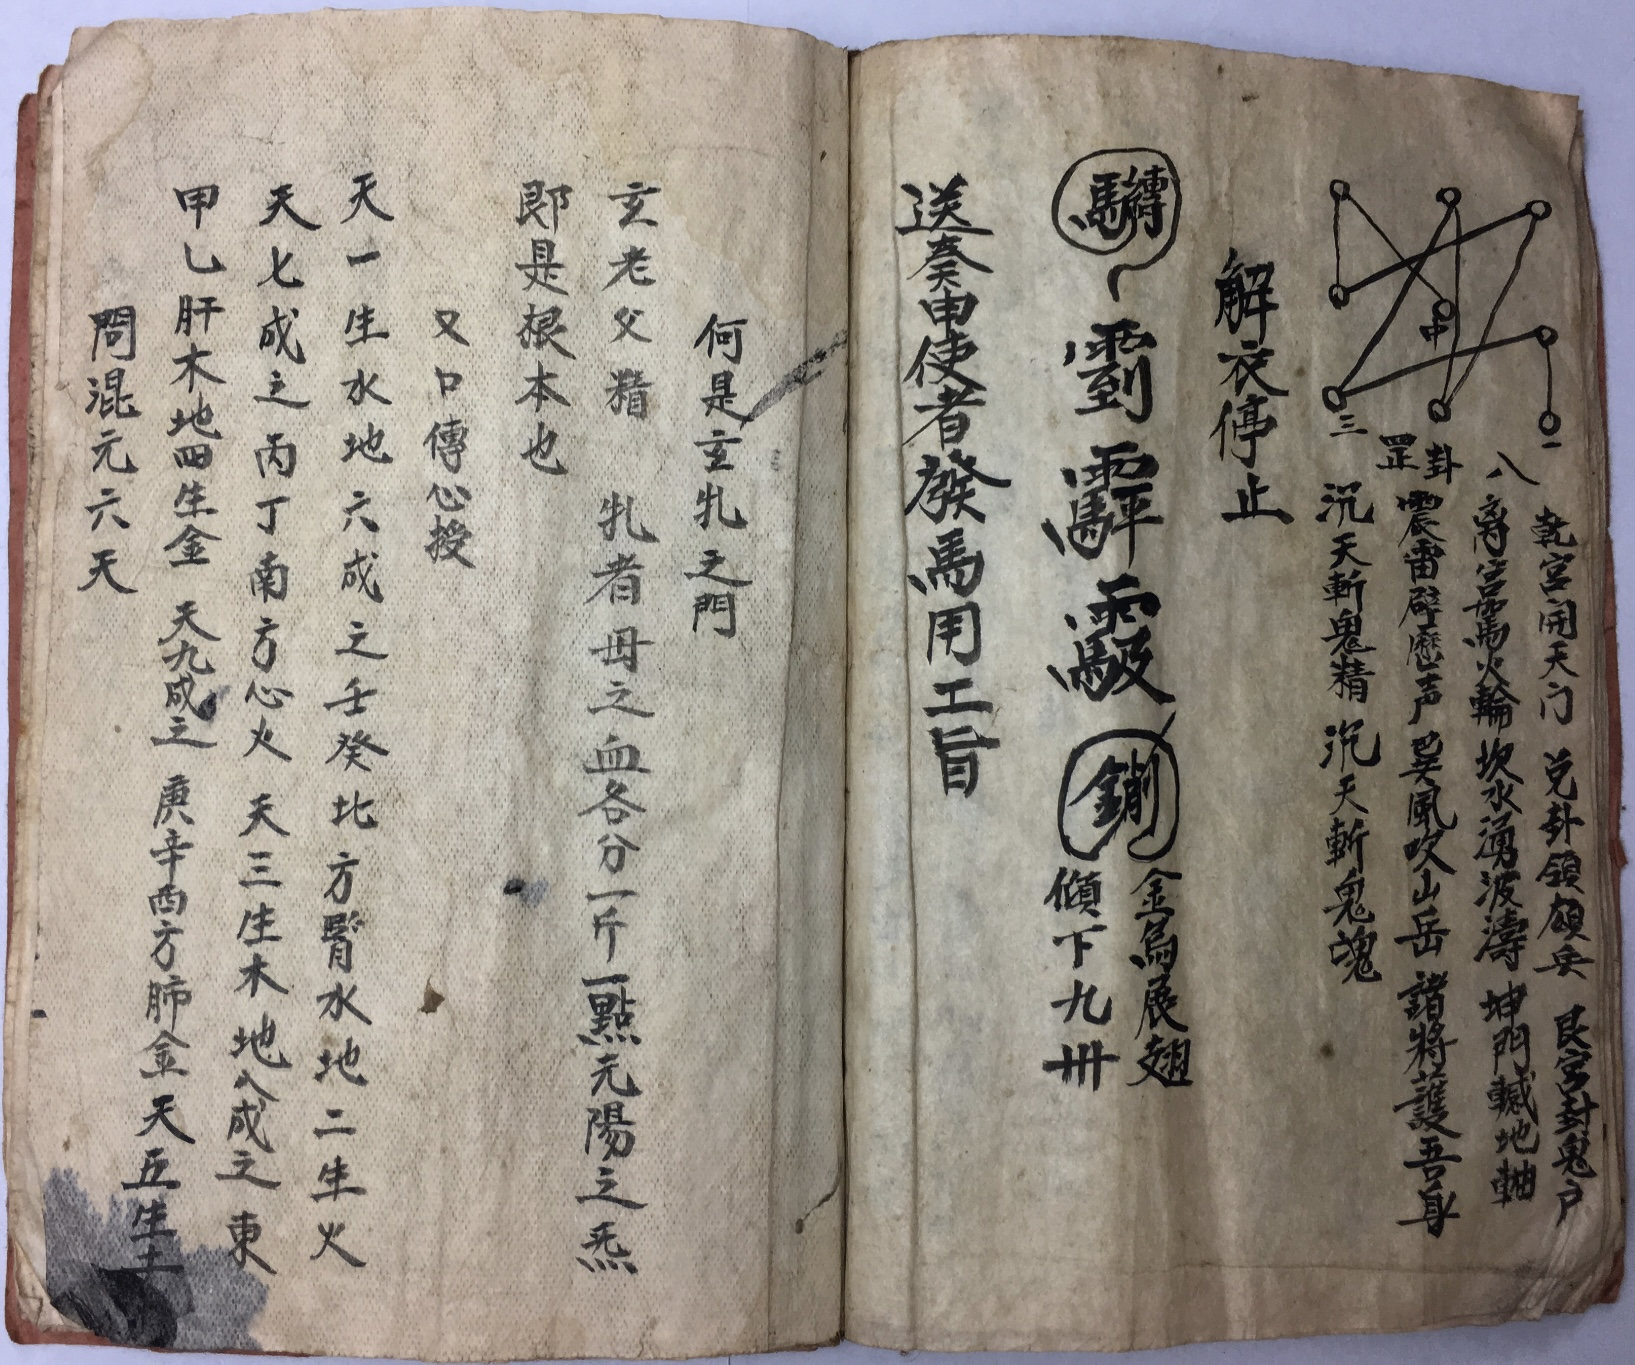 一
中
三
八
卦
罡
乾宮開天门 兑卦領雄兵 艮宮封鬼户
離宮駕火輪 坎水湧波濤 坤門轉地軸
震雷霹靂声 巽風吹山岳 諸將護吾身
沉天斬鬼精 沉天斬鬼魂
解衣停止
金烏展翅
傾下九卅
送奏申使者發馬用工旨
何是玄牝之門
玄老父精 牝者母之血各分一斤一點元陽之炁
即是根本也
又口傳心授
天一生水地六成之壬癸北方腎水地二生火
天七成之丙丁南方心火 天三生木地八成之東
甲乙肝木地四生金 天九成之 庚辛西方肺金 天五生土
問混元六天